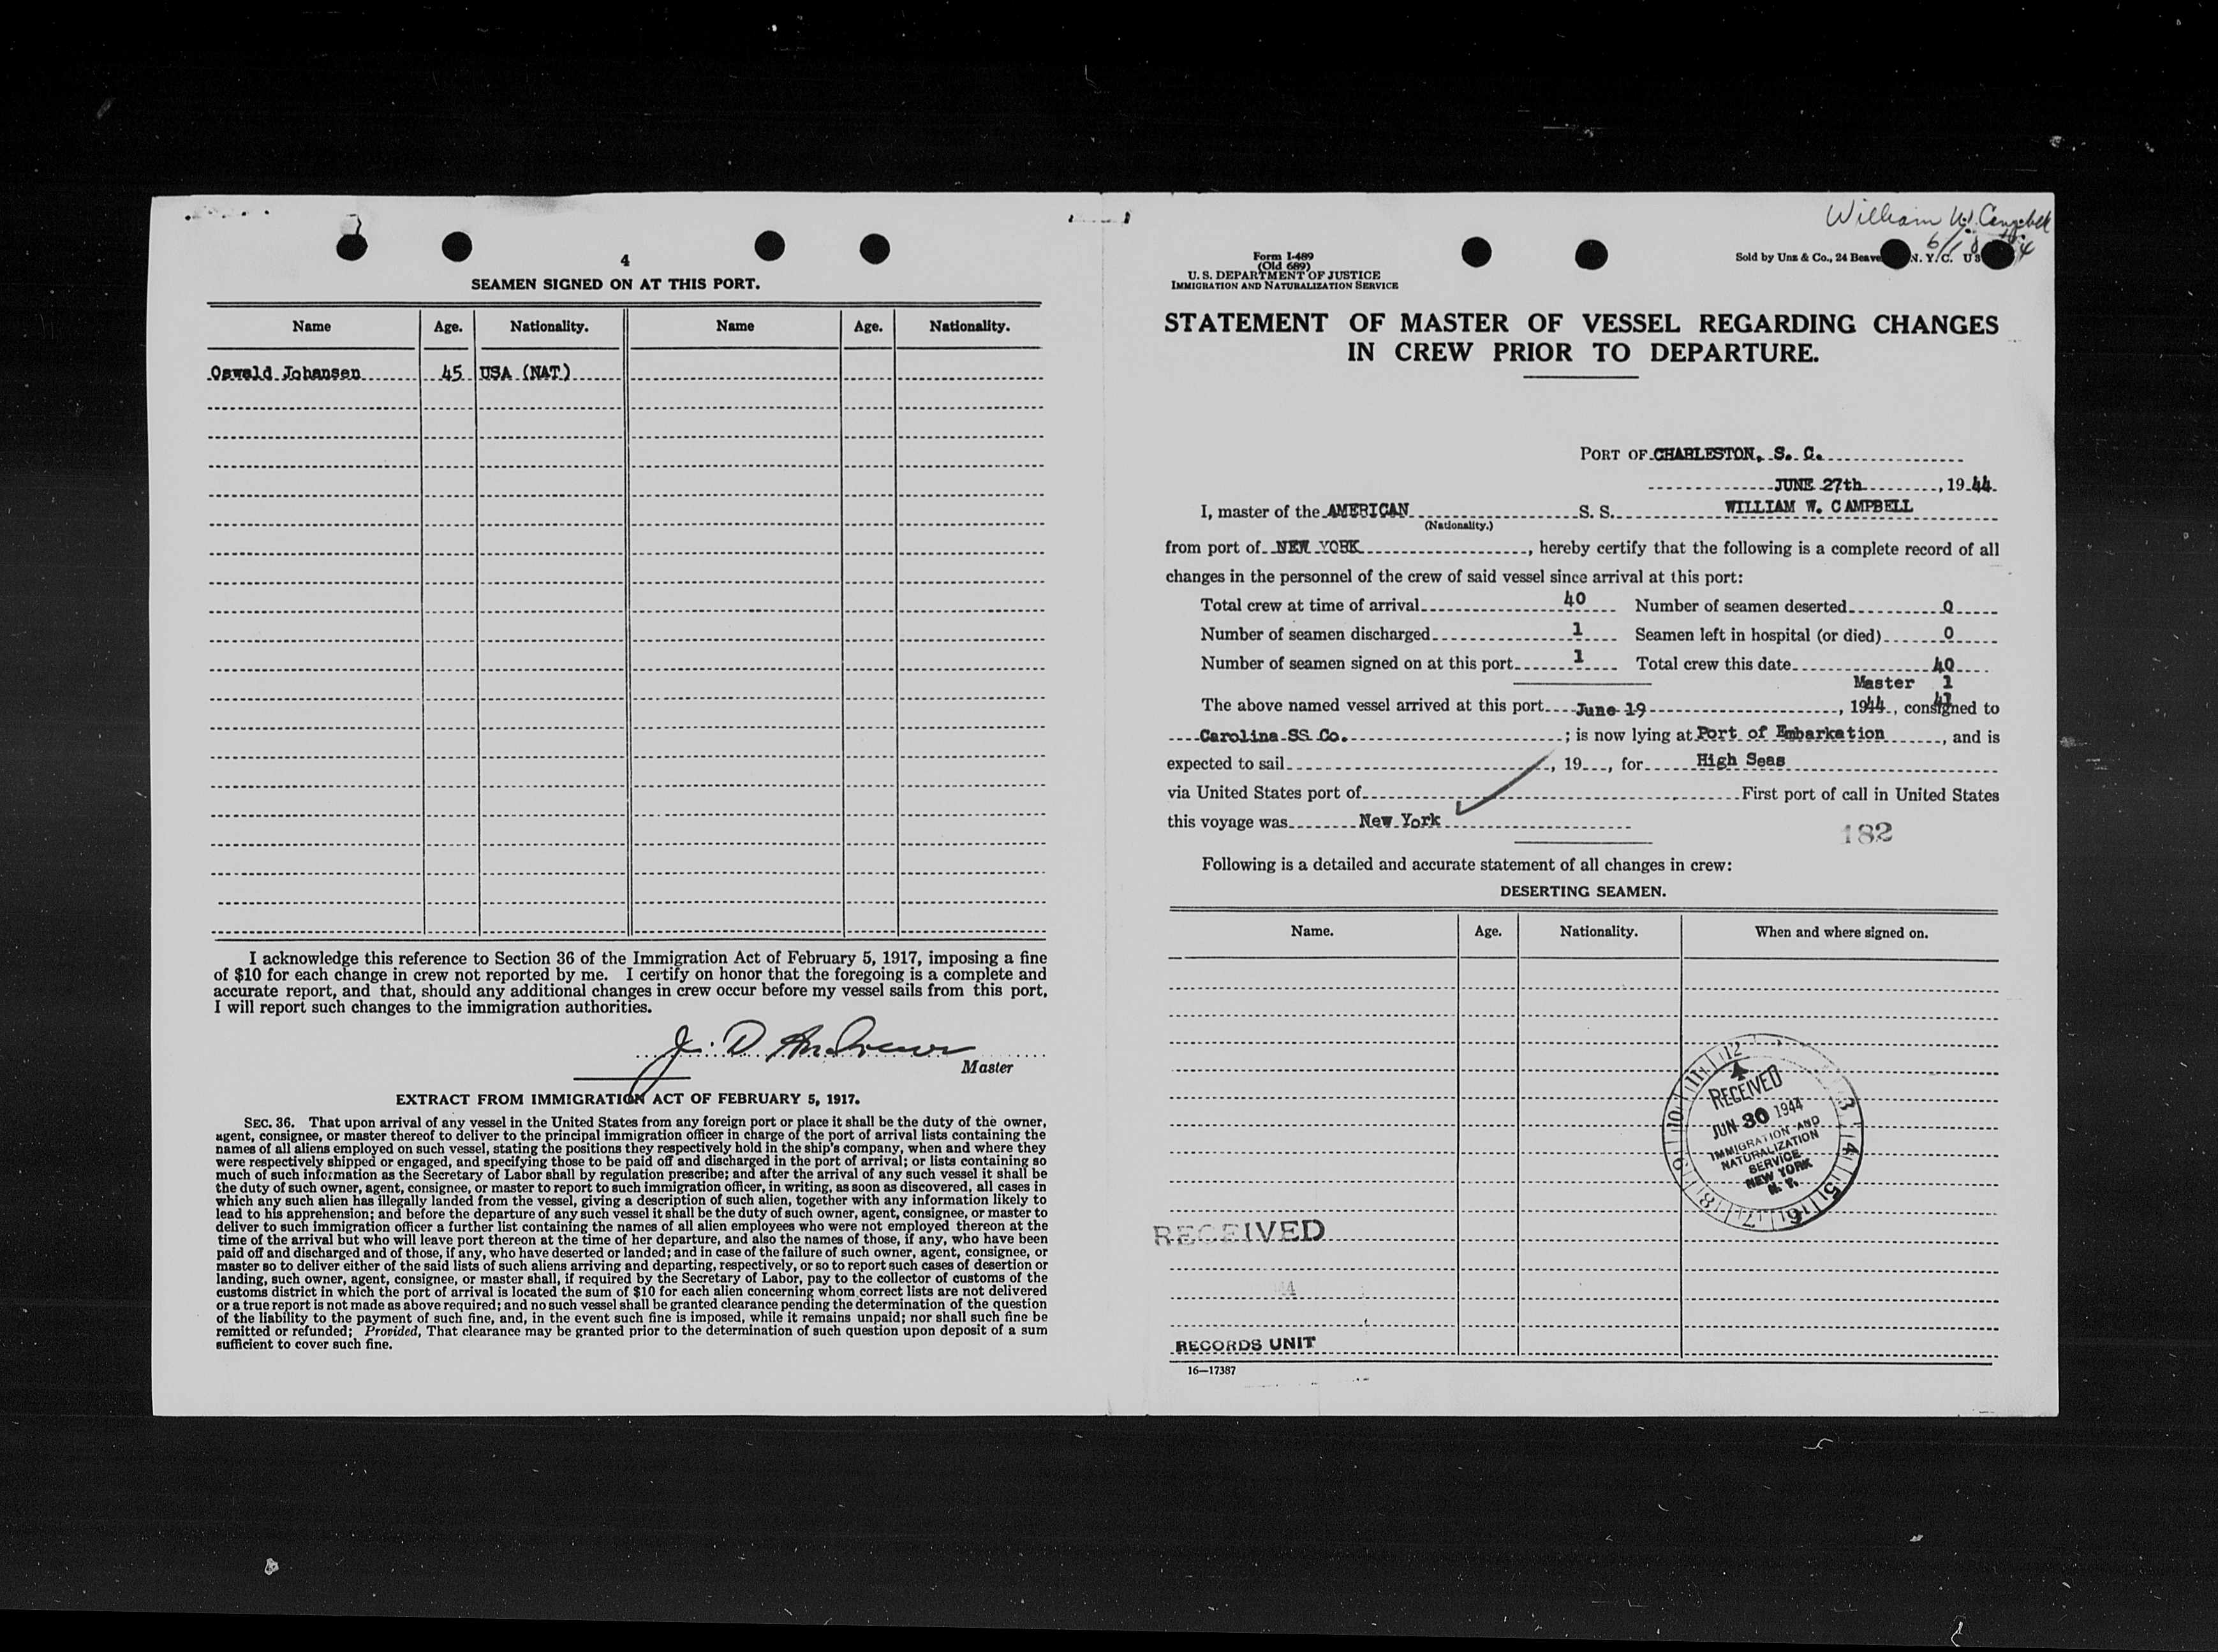 4
SEAMEN SIGNED ON AT THIS PORT.
Name Age. Nationality. Name Age. Nationality.
Oswald Johansen 45 USA (NAT)
I acknowledge this reference to Section 36 of the Immigration Act of February 5, 1917, imposing a fine
of $10 for each change in crew not reported by me. I certify on honor that the foregoing is a complete and
accurate report, and that, should any additional changes in crew occur before my vessel sails from this port,
I will report such changes to the immigration authorities.
J. D. Andrews
Master
EXTRACT FROM IMMIGRATION ACT OF FEBRUARY 5, 1917.
SEC. 36. That upon arrival of any vessel in the United States from any foreign port or place it shall be the duty of the owner,
agent, consignee, or master thereof to deliver to the principal immigration officer in charge of the port of arrival lists containing the
names of all aliens employed on such vessel, stating the positions they respectively hold in the ship's company, when and where they
were respectively shipped or engaged, and specifying those to be paid off and discharged in the port of arrival; or lists containing so
much of such information as the Secretary of Labor shall by regulation prescribe; and after the arrival of any such vessel it shall be
the duty of such owner, agent, consignee, or master to report to such immigration officer, in writing, as soon as discovered, all cases in
which any such alien has illegally landed from the vessel, giving a description of such alien, together with any information likely to
lead to his apprehension; and before the departure of any such vessel it shall be the duty of such owner, agent, consignee, or master to
deliver to such immigration officer a further list containing the names of all alien employees who were not employed thereon at the
time of the arrival but who will leave port thereon at the time of her departure, and also the names of those, if any, who have been
paid off and discharged and of those, if any, who have deserted or landed; and in case of the failure of such owner, agent, consignee, or
master so to deliver either of the said lists of such aliens arriving and departing, respectively, or so to report such cases of desertion or
landing, such owner, agent, consignee, or master shall, if required by the Secretary of Labor, pay to the collector of customs of the
customs district in which the port of arrival is located the sum of $10 for each alien concerning whom correct lists are not delivered
or a true report is not made as above required; and no such vessel shall be granted clearance pending the determination of the question
of the liability to the payment of such fine, and, in the event such fine is imposed, while it remains unpaid; nor shall such fine be
remitted or refunded; Provided, That clearance may be granted prior to the determination of such question upon deposit of a sum
sufficient to cover such fine.
William W. Campbell
Form I-489
(Old 689)
U. S. DEPARTMENT OF JUSTICE
IMMIGRATION AND NATURALIZATION SERVICE
Sold by Unz & Co., 24 Beave N. Y. C. U S
STATEMENT OF MASTER OF VESSEL REGARDING CHANGES
IN CREW PRIOR TO DEPARTURE.
PORT OF CHARLESTON, S. C.
JUNE 27th, 1944
I, master of the AMERICAN S. S. WILLIAM W. CAMPBELL
(Nationality.)
from port of NEW YORK, hereby certify that the following is a complete record of all
changes in the personnel of the crew of said vessel since arrival at this port:
Total crew at time of arrival 40 Number of seamen deserted 0
Number of seamen discharged 1 Seamen left in hospital (or died) 0
Number of seamen signed on at this port 1 Total crew this date 40
Master 1
41
The above named vessel arrived at this port June 19, 1944, consigned to
Carolina SS Co.; is now lying at Port of Embarkation, and is
expected to sail, 19, for High Seas
via United States port of First port of call in United States
this voyage was New York
182
Following is a detailed and accurate statement of all changes in crew:
DESERTING SEAMEN.
Name. Age. Nationality. When and where signed on.
12 3 4 5 6 7 8 9 10 11
RECEIVED
JUN 30 1944
IMMIGRATION AND
NATURALIZATION
SERVICE
NEW YORK
N. Y.
RECEIVED
RECORDS UNIT
16—17387